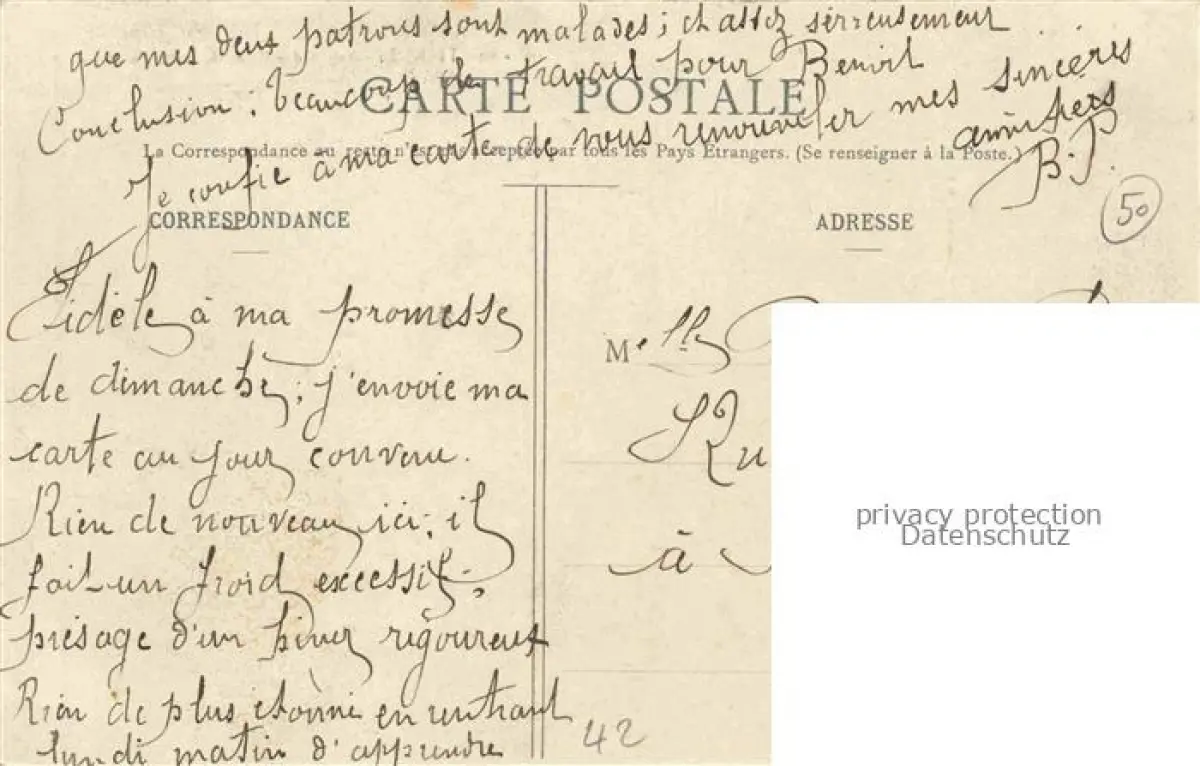 que mes deux patrons sont malades ; et assez sérieusement
Conclusion : Beaucoup de travail pour Benoit
CARTE POSTALE
La Correspondance au recto n'est pas acceptée par tous les Pays Etrangers. (Se renseigner à la Poste.)
Je confie à ma carte de vous renouveler mes sincères
amitiés
B.P.
50
CORRESPONDANCE
Fidèle à ma promesse
de dimanche ; j'envoie ma
carte au jour convenu.
Rien de nouveau ici ; il
fait un froid excessif ;
présage d'un hiver rigoureux
Rien de plus étonné en rentrant
lundi matin d'apprendre
ADRESSE
Melle
à
42
privacy protection
Datenschutz